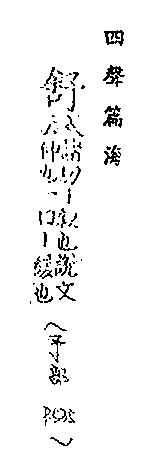 四聲篇海
舒
式諸切丨叙也說文
伸也一曰丨緩也
(予部
P.535
)